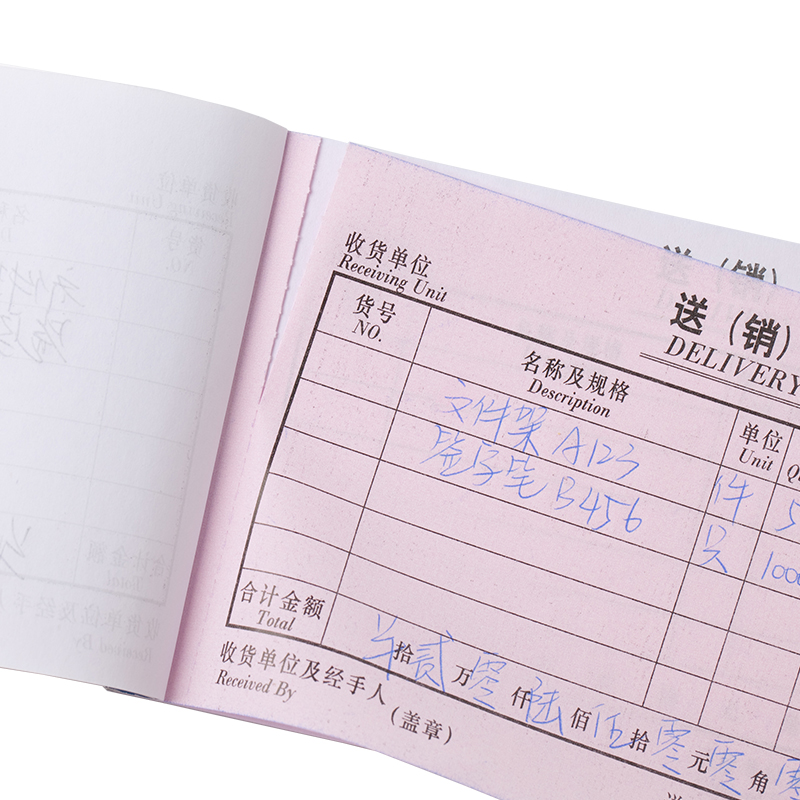 收货单位
Receiving Unit
送（销）
DELIVERY
货号
NO.
名称及规格
Description
单位
Unit
文件架 A123
件
5
签字笔 B456
只
1000
合计金额
Total
拾贰万零仟陆佰伍拾零元零角零
收货单位及经手人
Received By
（盖章）